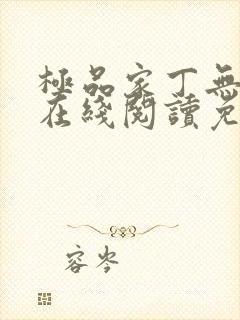 極品家丁無
在綫閱讀免
容岑